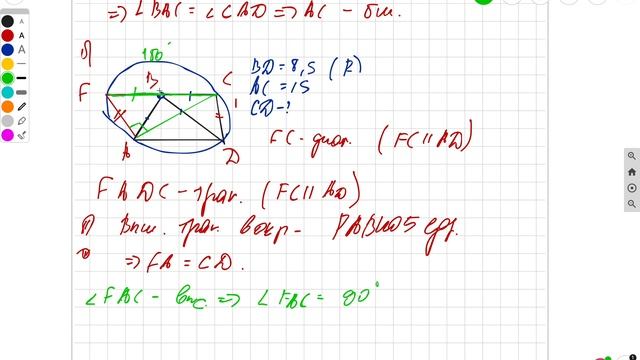 ⇒ ∠BAC = ∠CAD ⇒ AC - бис.
180°
F B C
A D
BD = 8,5 (R)
AC = 15
CD - ?
FC - диам. (FC ∥ AD)
FADC - трап. (FC ∥ AD)
Впис. трап. вокр -
⇒ FA = CD.
∠FAC - впис ⇒ ∠FAC = 90°